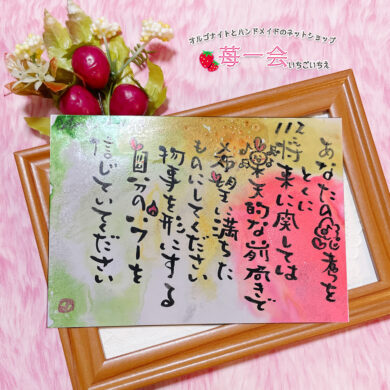 オルゴナイトとハンドメイドのネットショップ
苺一会 いちごいちえ
あなたの思考を
とくに
将来に関しては
楽天的な前向きで
希望に満ちた
ものにしてください
物事を形にする
自分のパワーを
信じていてください